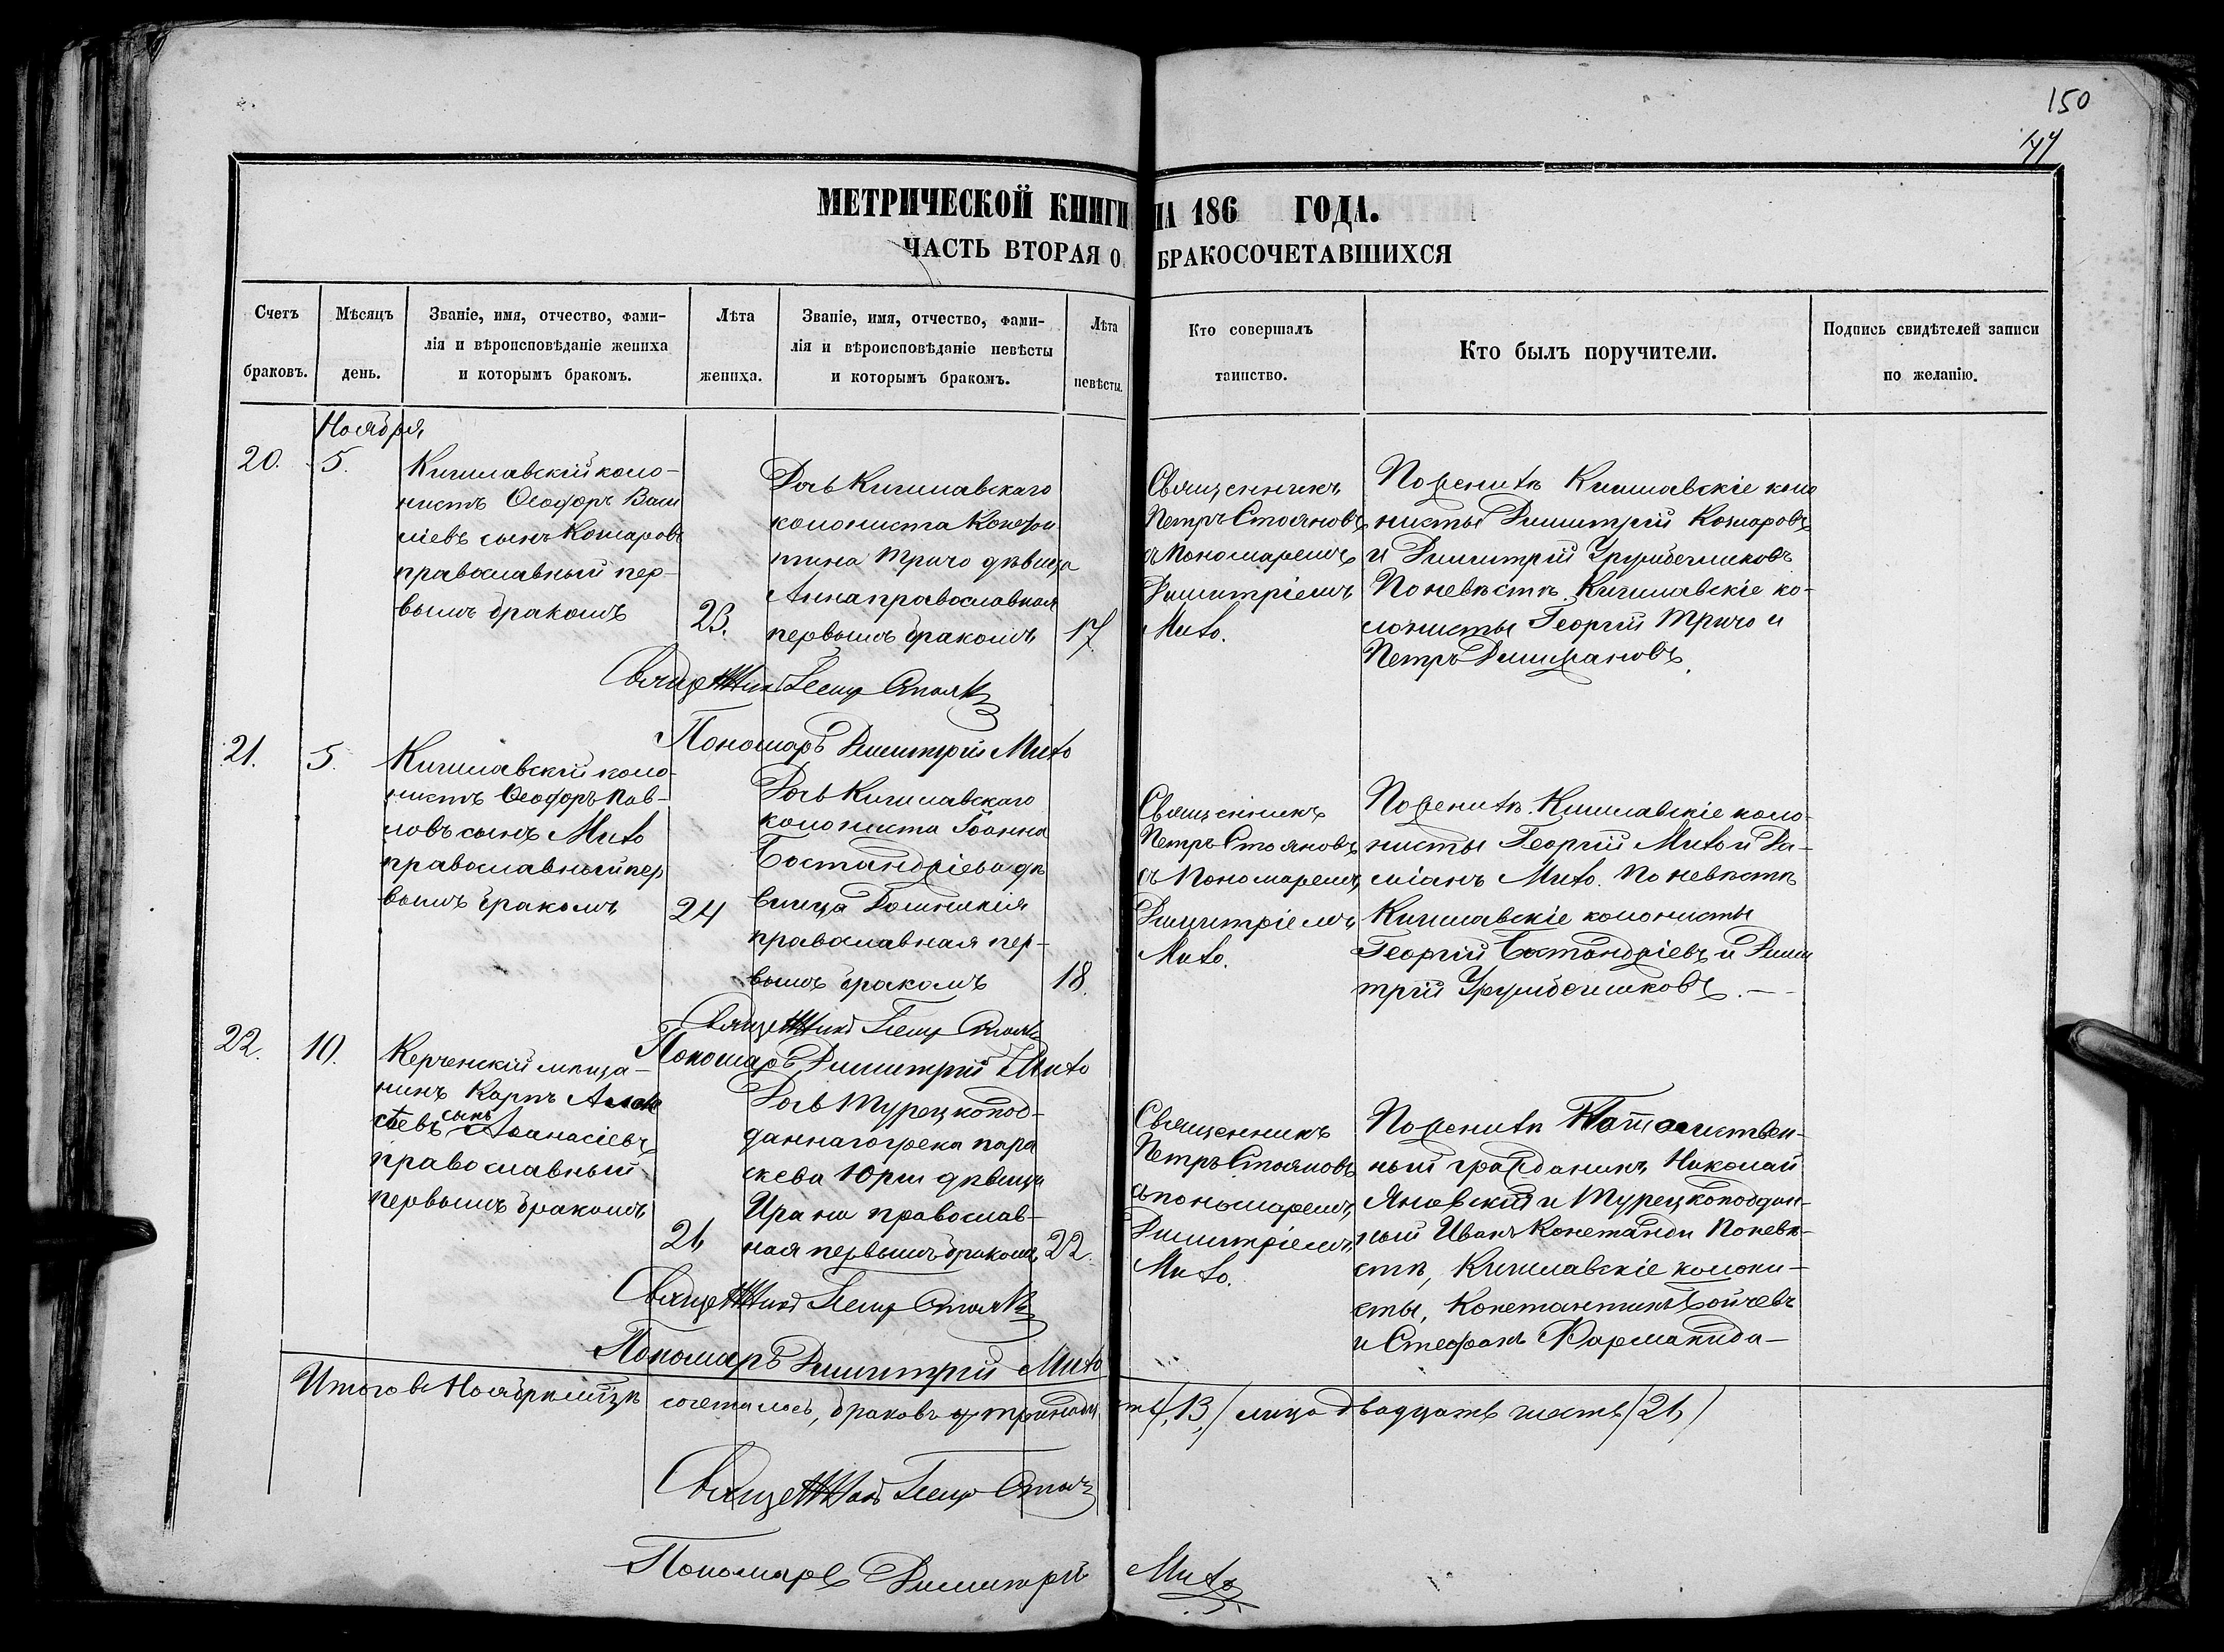 150
МЕТРИЧЕСКОЙ КНИГИ НА 186 ГОДА.
ЧАСТЬ ВТОРАЯ О БРАКОСОЧЕТАВШИХСЯ
Счетъ браковъ.
Мѣсяцъ день.
Званіе, имя, отчество, фами-
лія и вѣроисповѣданіе жениха
и которымъ бракомъ.
Лѣта жениха.
Званіе, имя, отчество, фами-
лія и вѣроисповѣданіе невѣсты
и которымъ бракомъ.
Лѣта невѣсты.
Кто совершалъ
таинство.
Кто былъ поручители.
Подпись свидѣтелей записи
по желанію.
Ноября
20.
5.
Кишлавскій коло-
нистъ Ѳеодоръ Васи
ліевъ сынъ Комаровъ
православный пер-
вымъ бракомъ
23.
Дочь Кишлавскаго
колониста Констан
тина Тричо дѣвица
Анна православная
первымъ бракомъ
17.
Священникъ
Петръ Стояновъ
съ Пономаремъ
Димитріемъ
Мито.
По женихѣ Кишлавскіе коло
нисты Димитрій Комаровъ
и Димитрій Урумбегликовъ
По невѣстѣ Кишлавскіе ко-
лонисты Георгій Тричо и
Петръ
Священникъ Петръ Стояновъ
Пономарь Димитрій Мито
21.
5.
Кишлавскій коло-
нистъ Ѳеодоръ Пав-
ловъ сынъ Мито
православный пер
вымъ бракомъ
24
Дочь Кишлавскаго
колониста Іоанна
Бостанджіева дѣ
вица Домникия
православная пер-
вымъ бракомъ
18.
Священникъ
Петръ Стояновъ
съ Пономаремъ
Димитріемъ
Мито.
По женихѣ Кишлавскіе коло-
нисты Георгій Мито и Да-
міанъ Мито. По невѣстѣ
Кишлавскіе колонисты
Георгій Бостанджіевъ и Дими
трій Урумбегликовъ.
Священникъ Петръ Стояновъ
Пономарь Димитрій Мито
22.
10.
Керченскій мѣща-
нинъ Карпъ Алек
сѣевъ сынъ Аѳанасіевъ
православный
первымъ бракомъ
26
Дочь Турецкопод-
даннаго грека Пара
скева Юрги дѣвица
Ирана православ-
ная первымъ бракомъ
22.
Священникъ
Петръ Стояновъ
съ пономаремъ
Димитріемъ
Мито.
По женихѣ Потомствен-
ный гражданинъ Николай
Яновскій и Турецкоподдан-
ный Иванъ Констанди По невѣ-
стѣ, Кишлавскіе колони-
сты, Константинъ Бойчевъ
и Стефанъ Карманжи
Священникъ Петръ Стояновъ
Пономарь Димитрій Мито
Итого въ Ноябрѣ мѣсяцѣ сочеталось, браковъ тринадцать /13/ лицъ двадцать шесть /26/
Священникъ Петръ Стояновъ
Пономарь Димитрій Мито